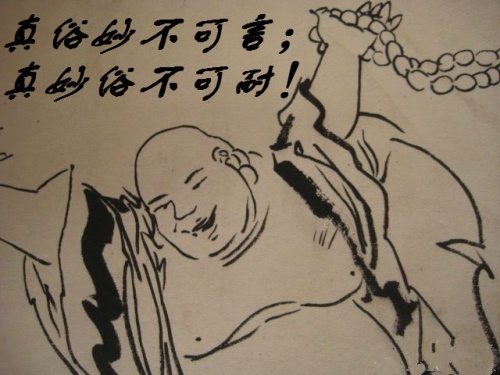 真俗妙不可言；
真妙俗不可耐！